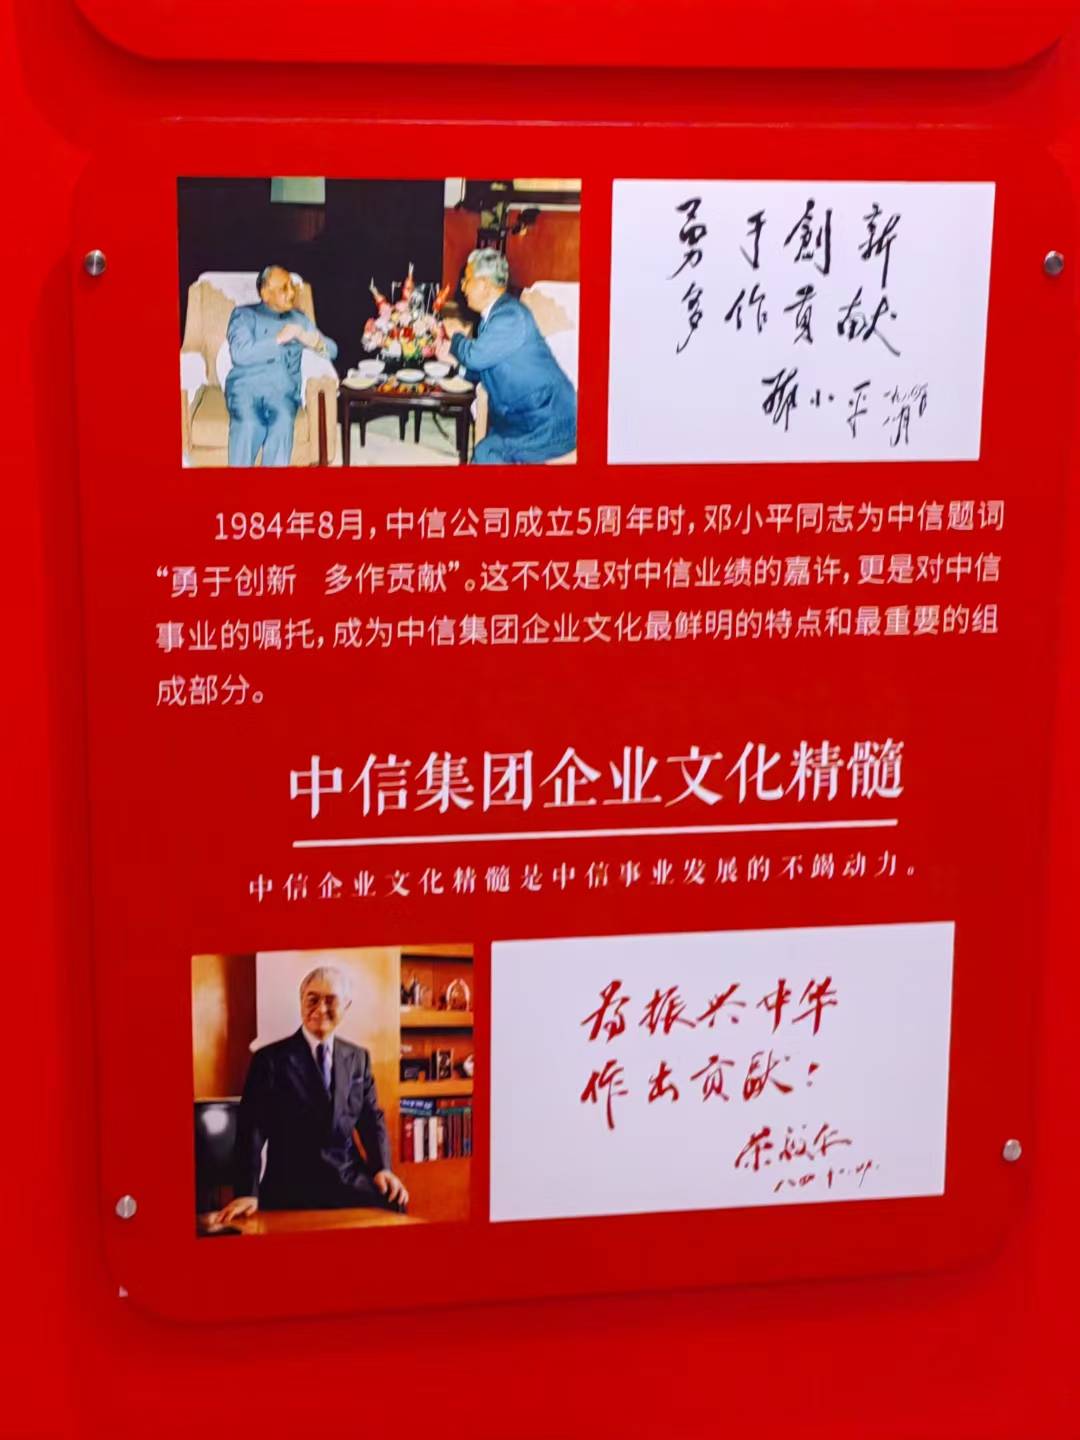 勇于創新
多作贡献
邓小平
1984年8月，中信公司成立5周年时，邓小平同志为中信题词
“勇于创新　多作贡献”。这不仅是对中信业绩的嘉许，更是对中信
事业的嘱托，成为中信集团企业文化最鲜明的特点和最重要的组
成部分。
中信集团企业文化精髓
中信企业文化精髓是中信事业发展的不竭动力。
为振兴中华
作出贡献：
荣毅仁